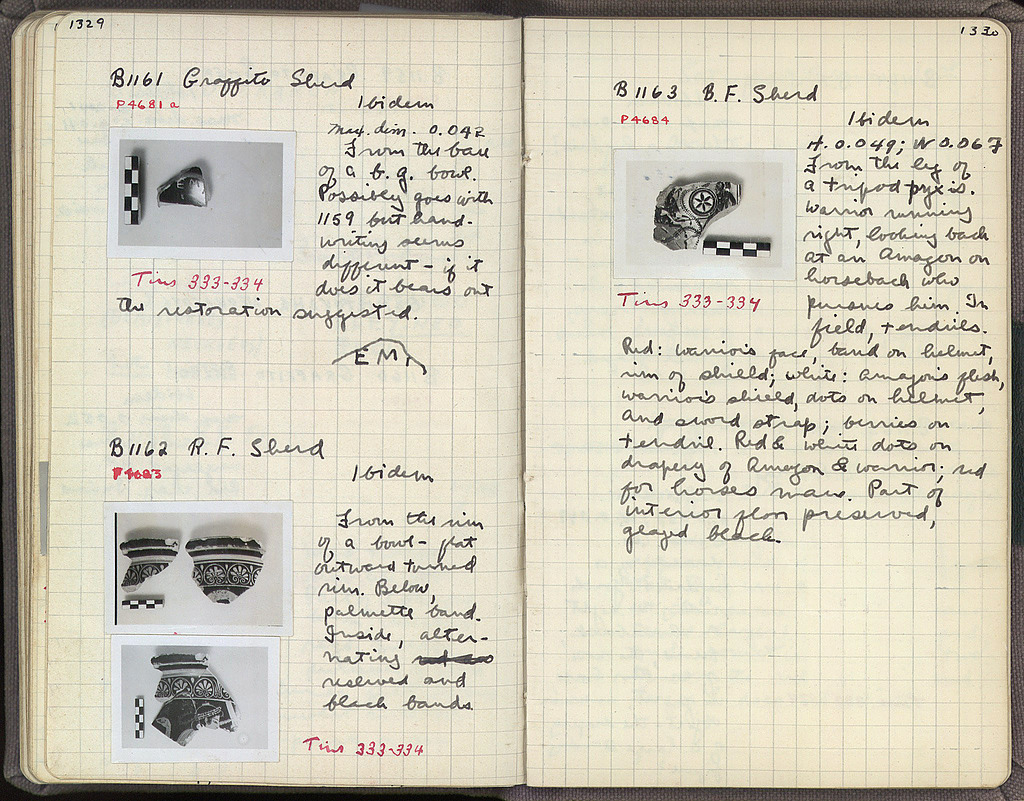 1329
B1161 Graffito Sherd
P4681a
Ibidem
Max. dim. 0.042
From the base
of a b.g. bowl.
Possibly goes with
1159 but hand-
writing seems
different - if it
does it bears out
the restoration suggested.
Tins 333-334
EMI
B1162 R.F. Sherd
P4683
Ibidem
From the rim
of a bowl - flat
outward turned
rim. Below,
palmette band.
Inside, alter-
nating
reserved and
black bands
Tins 333-334
1330
B1163 B.F. Sherd
P4684
Ibidem
H. 0.049; W 0.067
From the leg of
a tripod pyxis.
Warrior running
right, looking back
at an Amazon on
horseback who
pursues him. In
field, tendrils.
Tins 333-334
Red: warrior's face, band on helmet,
rim of shield; white: Amazon's flesh,
warrior's shield, dots on helmet,
and sword strap; berries on
tendril. Red & white dots on
drapery of Amazon & warrior; red
for horses mane. Part of
interior floor preserved,
glazed black.